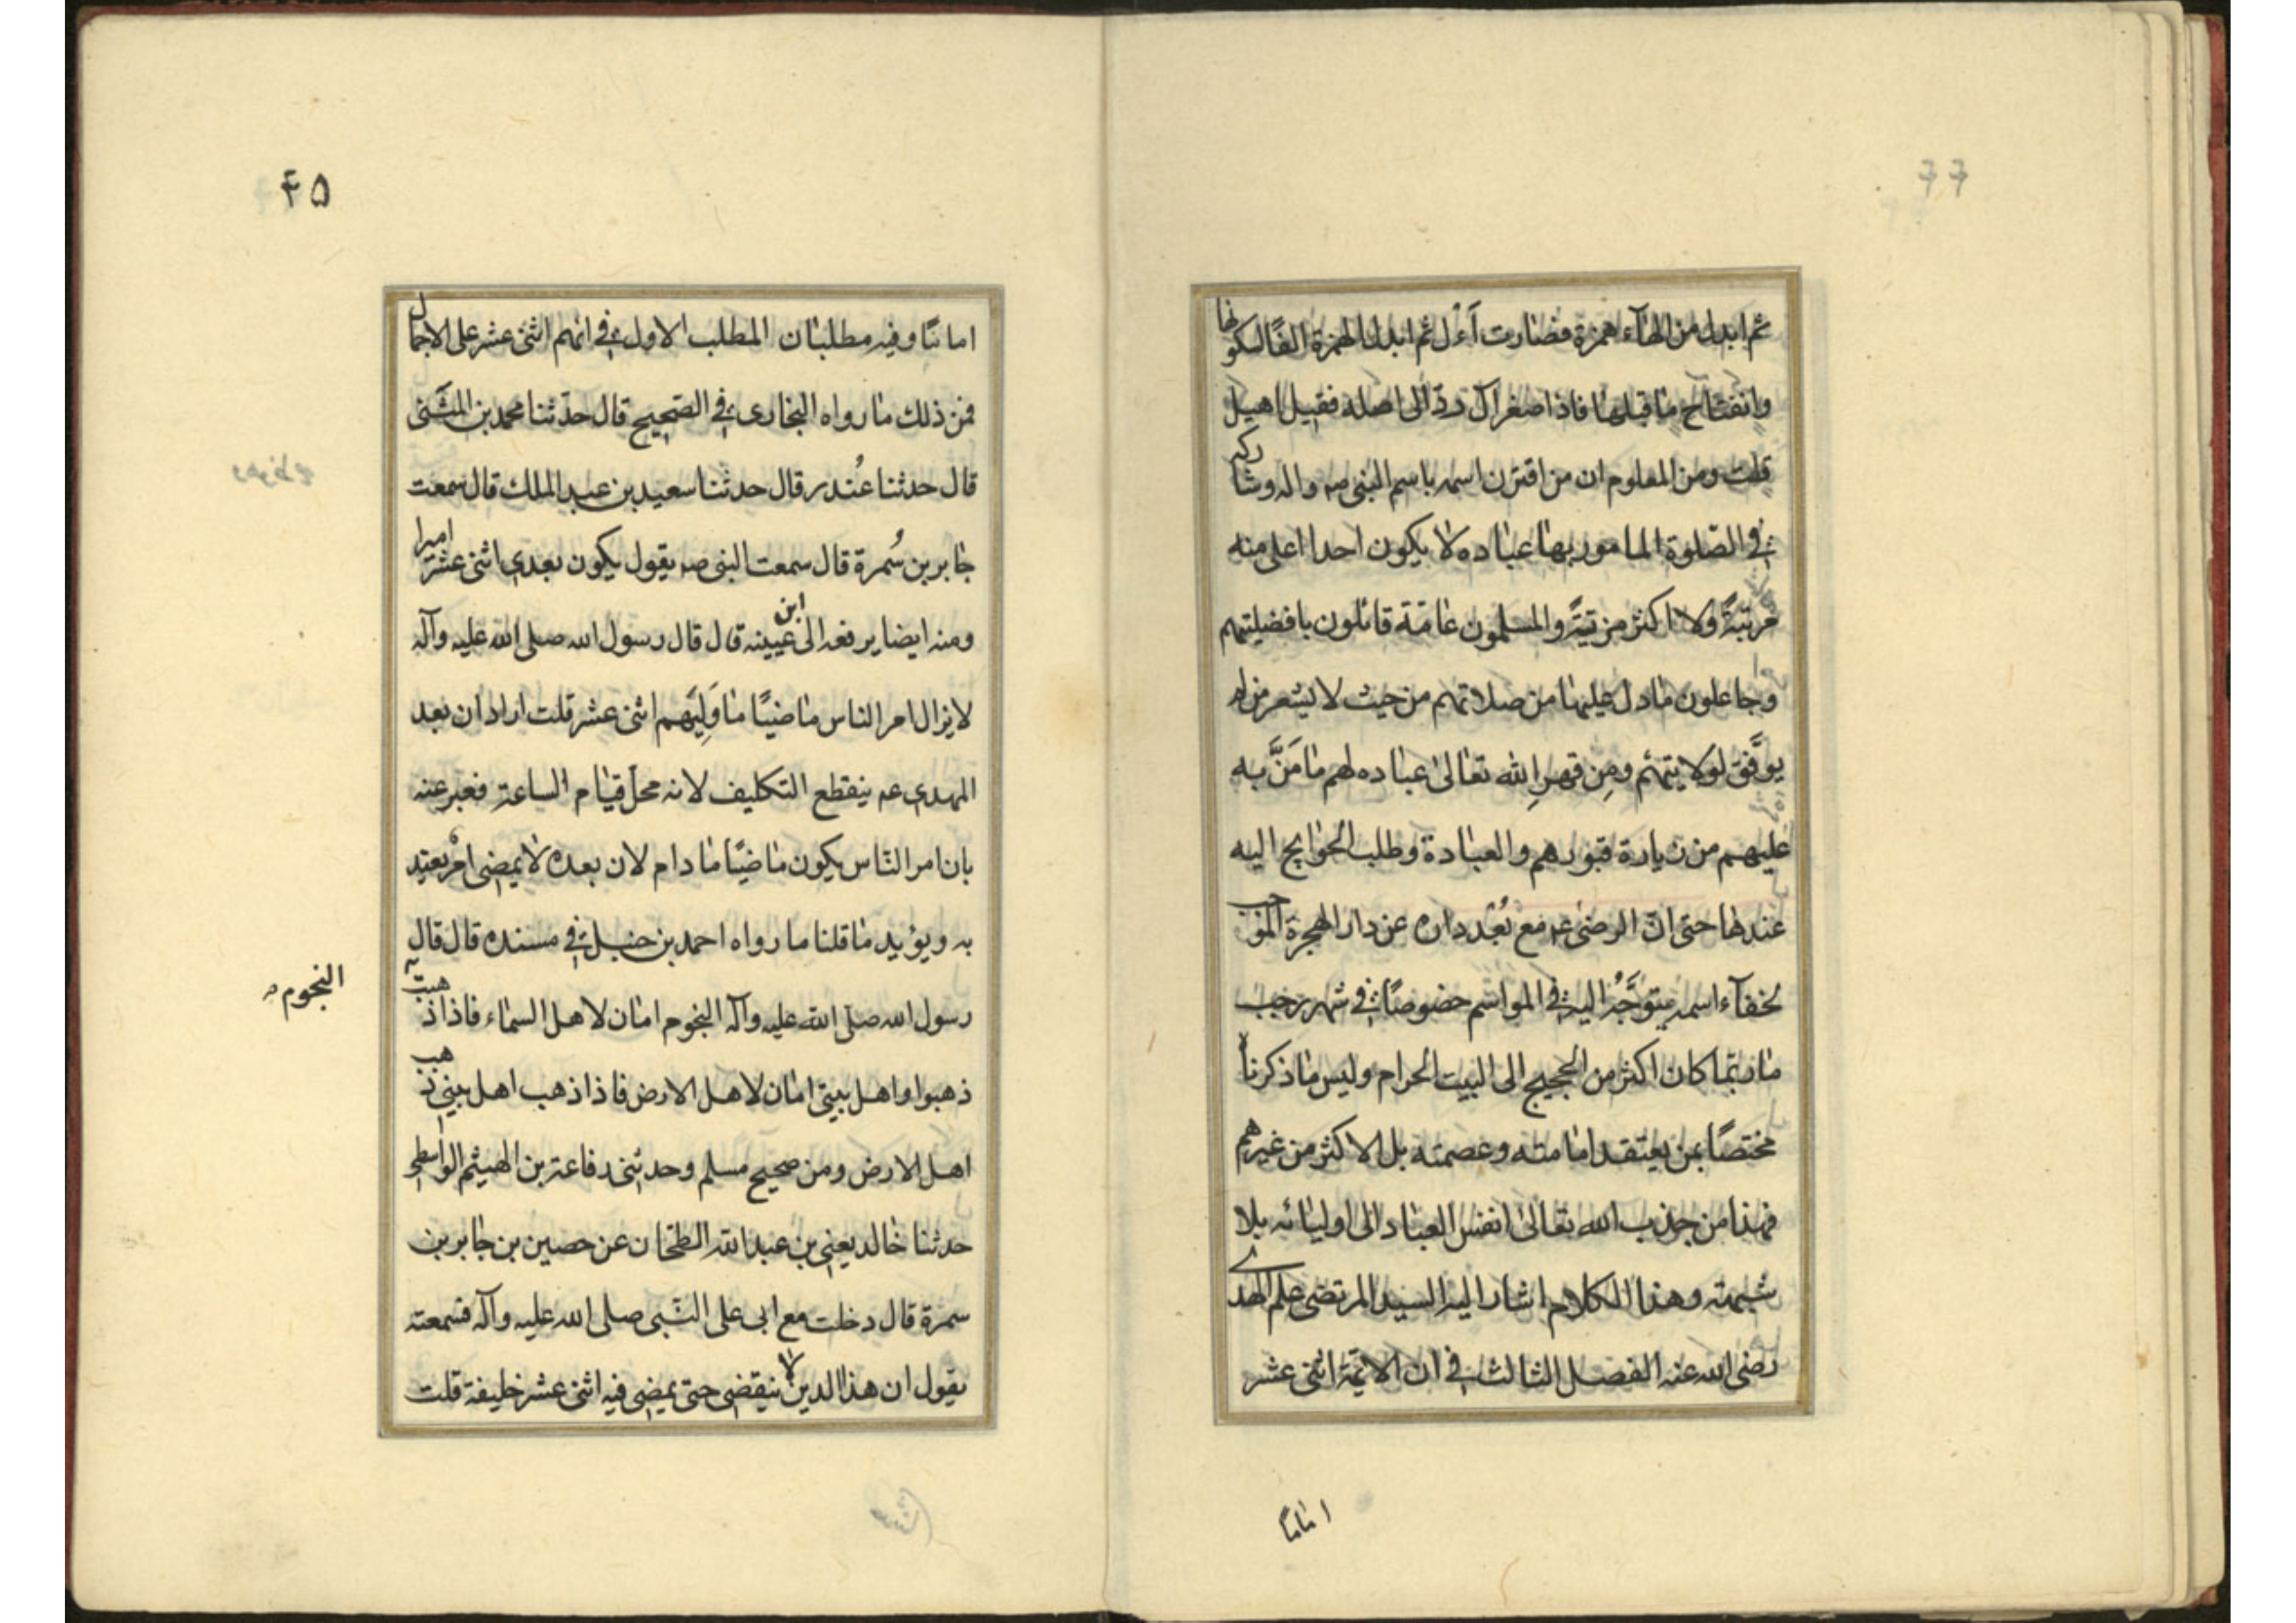 ثم ابدل من الهآء همزة فصارت آءل ثم ابدل الهمزة الفًا لسكونها
وانفتاح ما قبلها فاذا صغر آل ردّ الى اصله فقيل اهيل
قلت ومن المعلوم ان من اقترن اسمه باسم النبى صه واله وشاركه
فى الصّلوة المامور بها عباده لا يكون احدا اعلى منه
مرتبةً ولا اكثر مزيّةً والمسلمون عامّة قائلون بافضليتهم
وجاعلون ما دل عليها من صلاتهم من حيث لا يشعر من لم
يوفّق لولايتهم ومِن قهرِ الله تعالى عباده لهم ما مَنَّ به
عليهم من زيارة قبورهم والعبادة وطلب الحوايج اليه
عندها حتى انّ الرضى عه مع بُعْد داره عن دار الهجرة الموجب
لخفآء اسمه يتوجّه اليه فى المواسم خصوصًا فى شهر رجب
ما ربّما كان اكثر من الحجيج الى البيت الحرام وليس ما ذكرناه
مختصًا بمن يعتقد امامته وعصمته بل الاكثر من غيرهم
فهذا من جذب الله تعالى انفس العباد الى اوليائه بلا
شبهته وهذا الكلام اشار اليه السيد المرتضى علم الهدى
رضى الله عنه الفصل الثالث فى ان الائمّة اثنى عشر
امامًا
۴۵
امامًا وفيه مطلبان المطلب الاول فى انهم اثنى عشر على الاجمال
فمن ذلك ما رواه البخارى فى الصّحيح قال حدّثنا محمد بن المثنّى
قال حدثنا غُندر قال حدثنا سعيد بن عبد الملك قال سمعت
جابر بن سُمرة قال سمعت النبى صه يقول يكون بعدى اثنى عشر اميرا
ومنه ايضا يرفعه الى ابن عيينه قال قال رسول الله صلى الله عليه وآله
لا يزال امر الناس ماضيًا ما وَلِيَهم اثنى عشر قلت اراد ان بعد
المهدى عه ينقطع التكليف لانه محلّ قيام الساعة فعبر عنه
بان امر النّاس يكون ماضيًا ما دام لان بعده لا يمضى امرٌ يعتد
به ويؤيد ما قلنا ما رواه احمد بن حنبل فى مسنده قال قال
رسول الله صلّى الله عليه وآله النجوم امان لاهل السماء فاذا ذهبت
النجوم
ذهبوا واهل بيتى امان لاهل الارض فاذا ذهب اهل بيتى ذهب
اهل الارض ومن صحيح مسلم وحدثنى رفاعة بن الهيثم الواسطى
حدثنا خالد يعنى بن عبد الله الطحّان عن حصين بن جابر بن
سمرة قال دخلت مع ابى على النّبى صلى الله عليه وآله فسمعته
يقول ان هذا الدين لا ينقضى حتى يمضى فيه اثنى عشر خليفة قلت